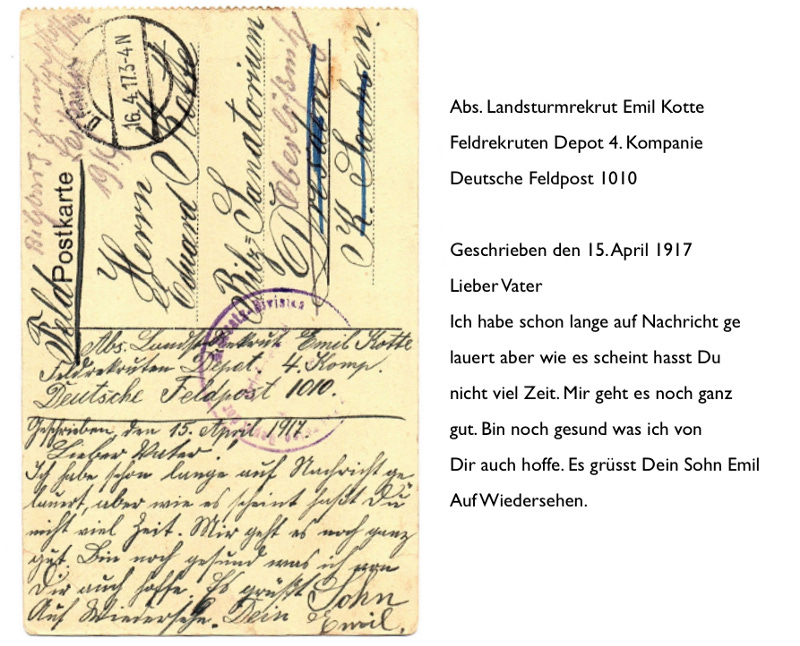 Feld Postkarte
16.4.17.3-4N
Herrn
Edward Kotte
Bilz-Sanatorium
Oberlößnitz
Dresden
K. Sachsen.
Abs. Landst. Rekrut Emil Kotte
Feldrekruten Depot. 4. Komp.
Deutsche Feldpost 1010.
Geschrieben, den 15. April 1917
Lieber Vater!
Ich habe schon lange auf Nachricht ge
lauert, aber wie es scheint haßt Du
nicht viel Zeit. Mir geht es noch ganz
gut. Bin noch gesund was ich von
Dir auch hoffe. Es grüßt
Auf Wiederseh. Dein Sohn
Emil.
Abs. Landsturmrekrut Emil Kotte
Feldrekruten Depot 4. Kompanie
Deutsche Feldpost 1010
Geschrieben den 15. April 1917
Lieber Vater
Ich habe schon lange auf Nachricht ge
lauert aber wie es scheint hasst Du
nicht viel Zeit. Mir geht es noch ganz
gut. Bin noch gesund was ich von
Dir auch hoffe. Es grüsst Dein Sohn Emil
Auf Wiedersehen.